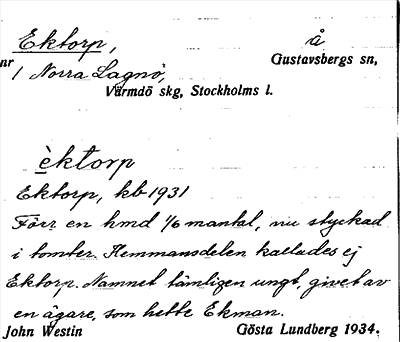 Ektorp, å
Gustavsbergs sn,
nr 1 Norra Lagnö,
Värmdö skg, Stockholms l.
èktorp
Ektorp, kb 1931
Förr en hmd 1/6 mantal, nu styckad
i tomter. Hemmansdelen kallades ej
Ektorp. Namnet tämligen ungt, givet av
en ägare, som hette Ekman.
John Westin Gösta Lundberg 1934.